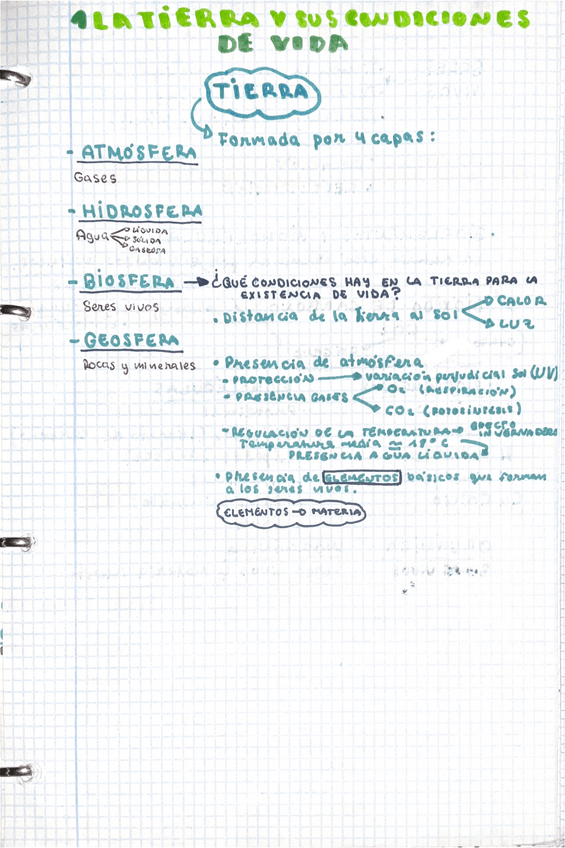 1 LA TIERRA Y SUS CONDICIONES
DE VIDA
TIERRA
Formada por 4 capas:
- ATMÓSFERA
Gases
- HIDROSFERA
Agua
LÍQUIDA
SÓLIDA
GASEOSA
- BIOSFERA → ¿QUÉ CONDICIONES HAY EN LA TIERRA PARA LA
EXISTENCIA DE VIDA?
Seres vivos
• Distancia de la Tierra al Sol
CALOR
LUZ
- GEOSFERA
Rocas y minerales
• Presencia de atmósfera
- PROTECCIÓN → variación perjudicial Sol (UV)
- PRESENCIA GASES
O₂ (RESPIRACIÓN)
CO₂ (FOTOSÍNTESIS)
- REGULACIÓN DE LA TEMPERATURA → EFECTO INVERNADERO
Temperatura media ≅ °C
PRESENCIA AGUA LÍQUIDA
• Presencia de ELEMENTOS básicos que forman
a los seres vivos.
ELEMENTOS → MATERIA